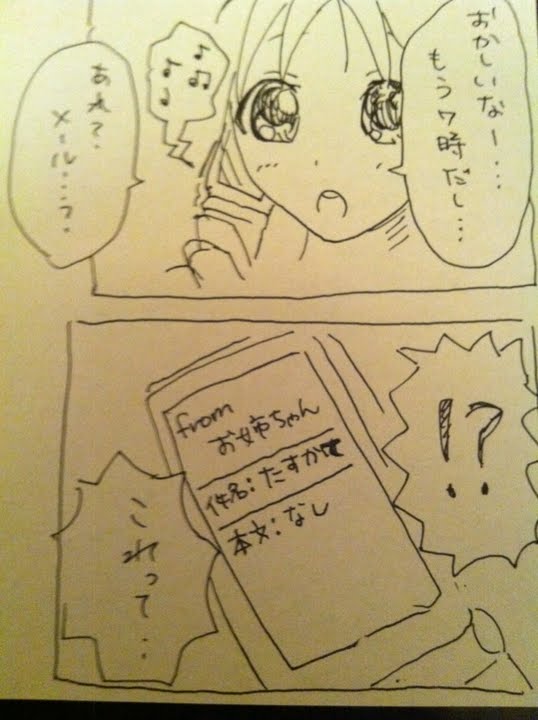 おかしいなー…
もう7時だし…
♪♫♪♪
あれ?
メール…?
!?
from
お姉ちゃん
件名:たすかて
本文:なし
これって…